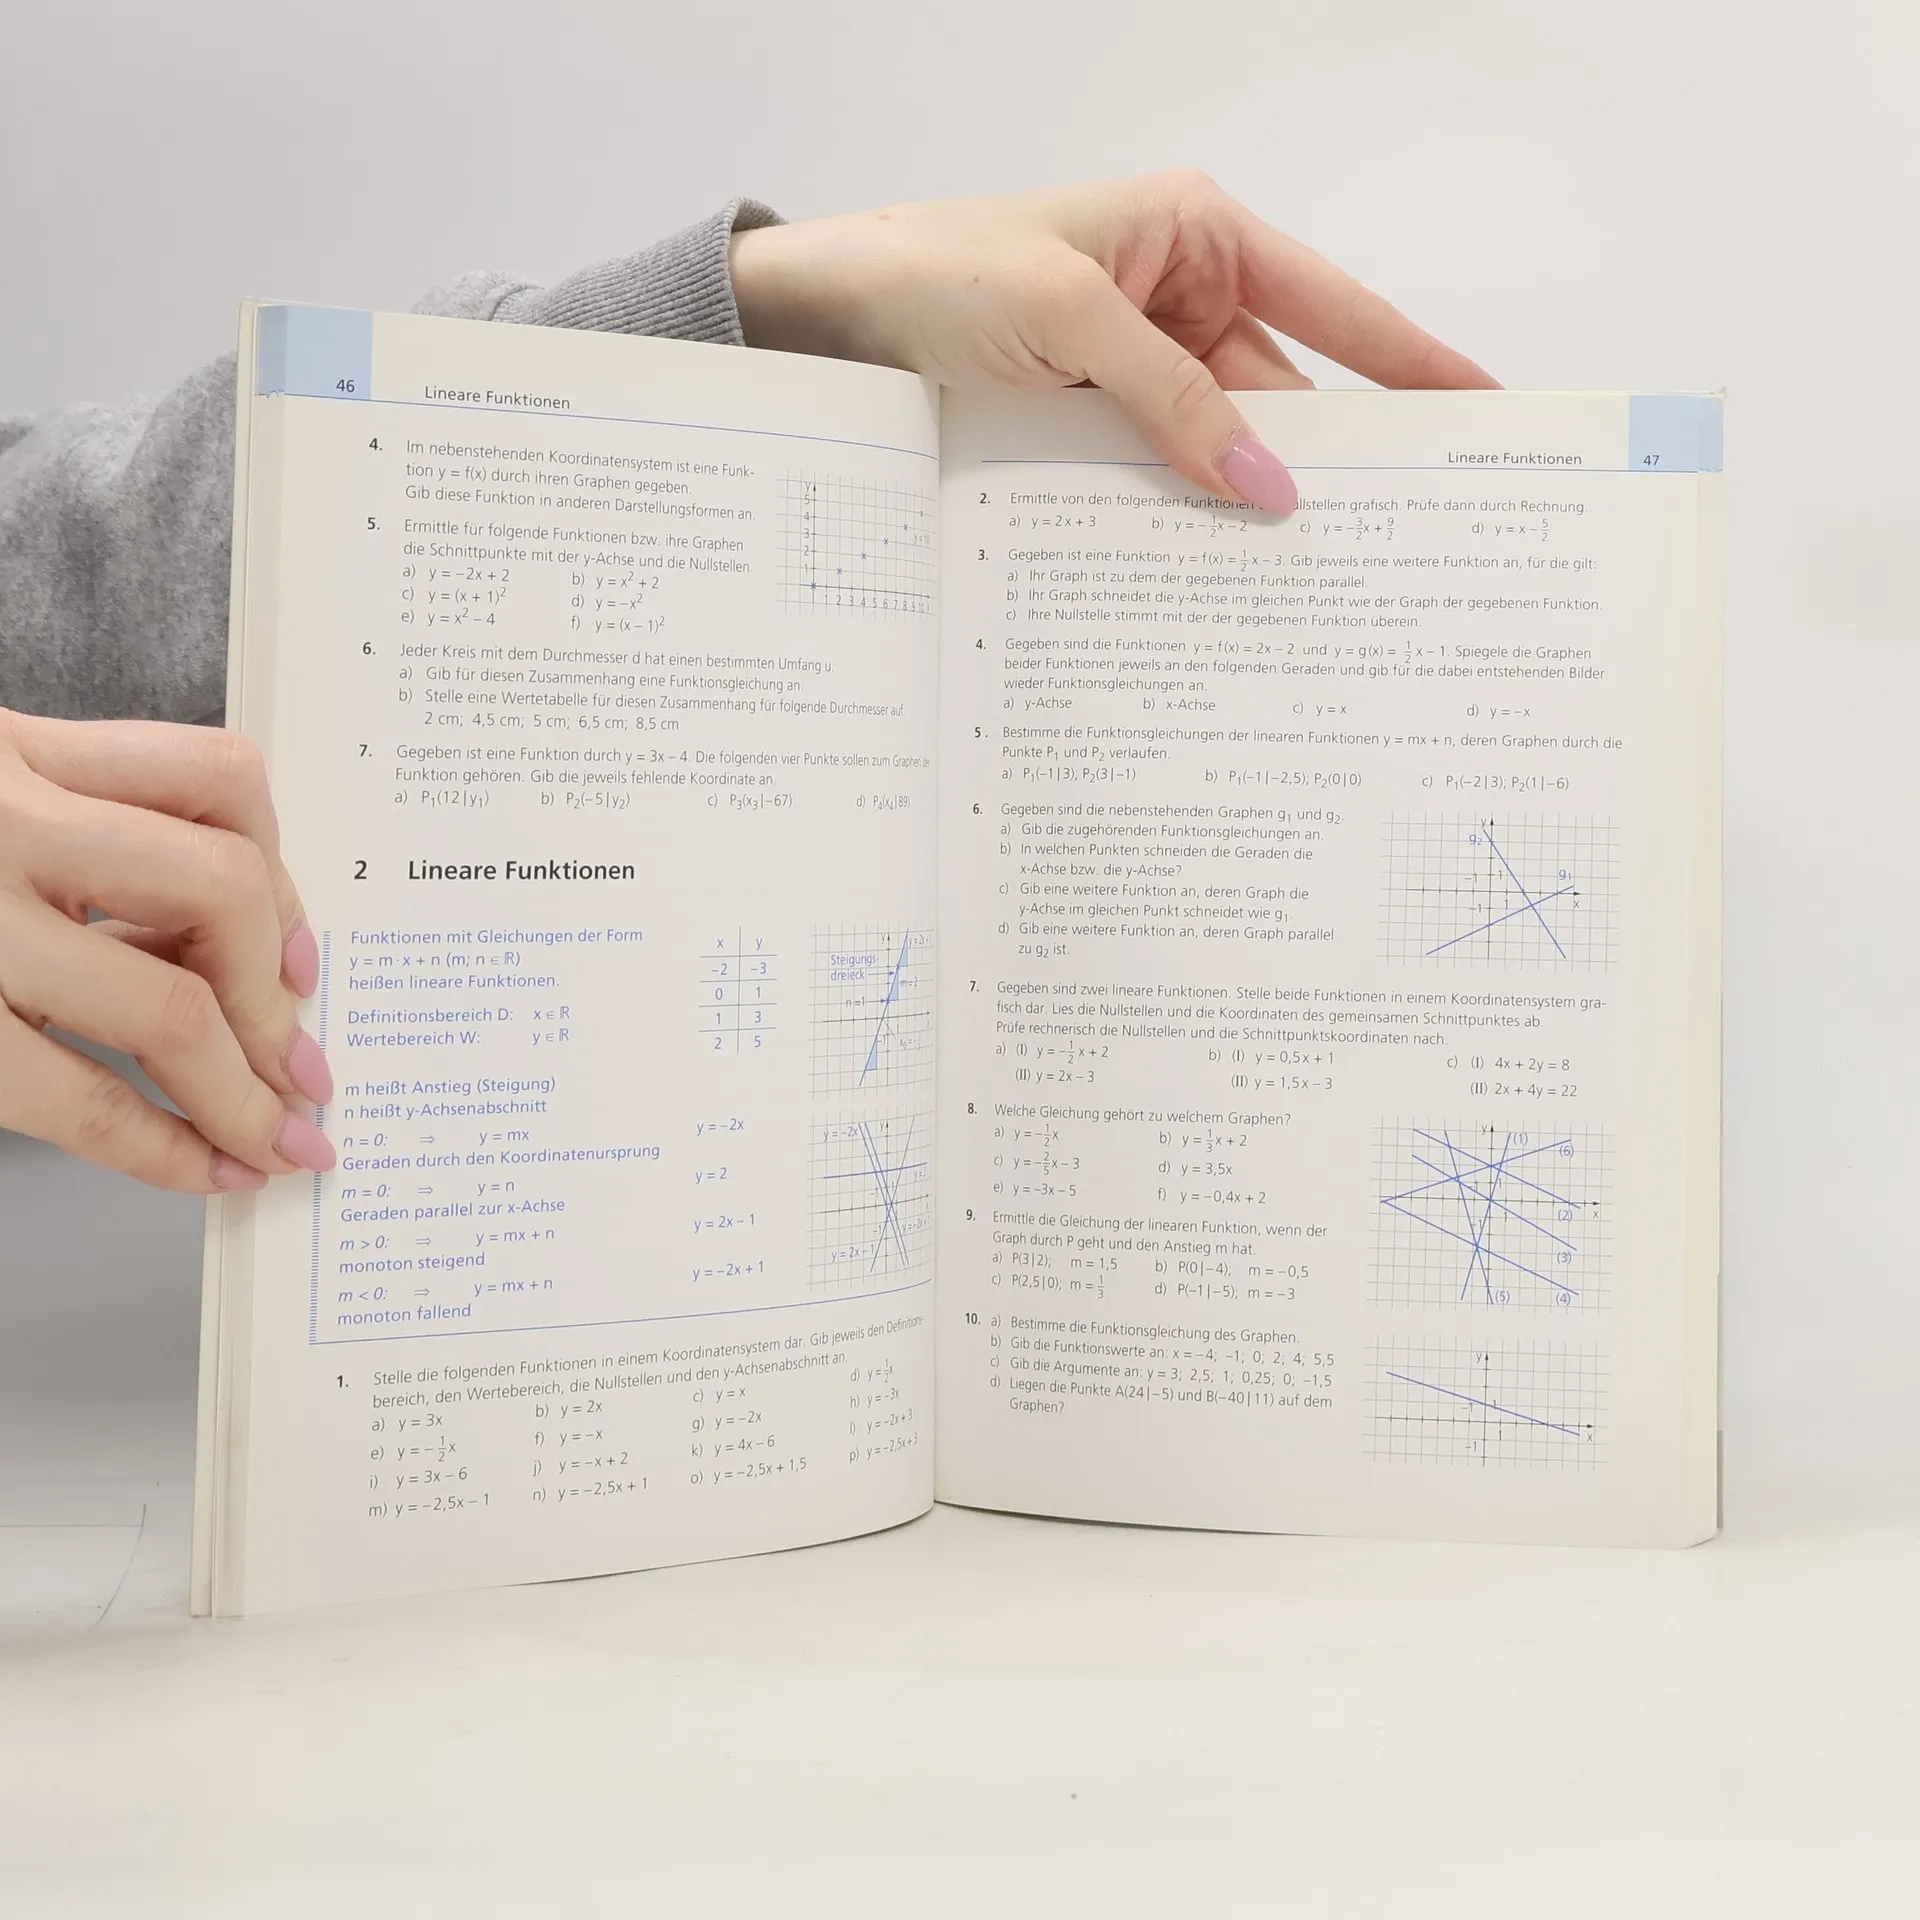 46
Lineare Funktionen
4. Im nebenstehenden Koordinatensystem ist eine Funk-
tion y = f(x) durch ihren Graphen gegeben.
Gib diese Funktion in anderen Darstellungsformen an.
5. Ermittle für folgende Funktionen bzw. ihre Graphen
die Schnittpunkte mit der y-Achse und die Nullstellen.
a) y = −2x + 2 b) y = x² + 2
c) y = (x + 1)² d) y = −x²
e) y = x² − 4 f) y = (x − 1)²
y
5
4
3
2
1
1 2 3 4 5 6 7 8 9 10
6. Jeder Kreis mit dem Durchmesser d hat einen bestimmten Umfang u.
a) Gib für diesen Zusammenhang eine Funktionsgleichung an.
b) Stelle eine Wertetabelle für diesen Zusammenhang für folgende Durchmesser auf:
2 cm; 4,5 cm; 5 cm; 6,5 cm; 8,5 cm
7. Gegeben ist eine Funktion durch y = 3x − 4. Die folgenden vier Punkte sollen zum Graphen der
Funktion gehören. Gib die jeweils fehlende Koordinate an.
a) P₁(12|y₁) b) P₂(−5|y₂) c) P₃(x₃|−67) d) P₄(x₄|89)
2 Lineare Funktionen
Funktionen mit Gleichungen der Form
y = m·x + n (m; n ∈ ℝ)
heißen lineare Funktionen.
Definitionsbereich D: x ∈ ℝ
Wertebereich W: y ∈ ℝ
x y
−2 −3
0 1
1 3
2 5
Steigungs-
dreieck
n=1
m=2
m heißt Anstieg (Steigung)
n heißt y-Achsenabschnitt
n = 0: ⇒ y = mx y = −2x
Geraden durch den Koordinatenursprung
m = 0: ⇒ y = n y = 2
Geraden parallel zur x-Achse
m > 0: ⇒ y = mx + n y = 2x − 1
monoton steigend
m < 0: ⇒ y = mx + n y = −2x + 1
monoton fallend
y=−2x
y
y=2
y=−2x+1
y=2x−1
1. Stelle die folgenden Funktionen in einem Koordinatensystem dar. Gib jeweils den Definitions-
bereich, den Wertebereich, die Nullstellen und den y-Achsenabschnitt an.
a) y = 3x b) y = 2x c) y = x d) y = ½x
e) y = −½x f) y = −x g) y = −2x h) y = −3x
i) y = 3x − 6 j) y = −x + 2 k) y = 4x − 6 l) y = −2x + 3
m) y = −2,5x − 1 n) y = −2,5x + 1 o) y = −2,5x + 1,5 p) y = −2,5x + 3
Lineare Funktionen
47
2. Ermittle von den folgenden Funktionen
stellen grafisch. Prüfe dann durch Rechnung.
a) y = 2x + 3 b) y = −½x − 2 c) y = −3/2x + 9/2 d) y = x − 5/2
3. Gegeben ist eine Funktion y = f(x) = ½x − 3. Gib jeweils eine weitere Funktion an, für die gilt:
a) Ihr Graph ist zu dem der gegebenen Funktion parallel.
b) Ihr Graph schneidet die y-Achse im gleichen Punkt wie der Graph der gegebenen Funktion.
c) Ihre Nullstelle stimmt mit der der gegebenen Funktion überein.
4. Gegeben sind die Funktionen y = f(x) = 2x − 2 und y = g(x) = ½x − 1. Spiegele die Graphen
beider Funktionen jeweils an den folgenden Geraden und gib für die dabei entstehenden Bilder
wieder Funktionsgleichungen an.
a) y-Achse b) x-Achse c) y = x d) y = −x
5. Bestimme die Funktionsgleichungen der linearen Funktionen y = mx + n, deren Graphen durch die
Punkte P₁ und P₂ verlaufen.
a) P₁(−1|3); P₂(3|−1) b) P₁(−1|−2,5); P₂(0|0) c) P₁(−2|3); P₂(1|−6)
6. Gegeben sind die nebenstehenden Graphen g₁ und g₂.
a) Gib die zugehörenden Funktionsgleichungen an.
b) In welchen Punkten schneiden die Geraden die
x-Achse bzw. die y-Achse?
c) Gib eine weitere Funktion an, deren Graph die
y-Achse im gleichen Punkt schneidet wie g₁.
d) Gib eine weitere Funktion an, deren Graph parallel
zu g₂ ist.
y
g₂
g₁
−1 1
x
−1 1
7. Gegeben sind zwei lineare Funktionen. Stelle beide Funktionen in einem Koordinatensystem gra-
fisch dar. Lies die Nullstellen und die Koordinaten des gemeinsamen Schnittpunktes ab.
Prüfe rechnerisch die Nullstellen und die Schnittpunktskoordinaten nach.
a) (I) y = −½x + 2 b) (I) y = 0,5x + 1 c) (I) 4x + 2y = 8
(II) y = 2x − 3 (II) y = 1,5x − 3 (II) 2x + 4y = 22
8. Welche Gleichung gehört zu welchem Graphen?
a) y = −½x b) y = ⅓x + 2
c) y = −⅖x − 3 d) y = 3,5x
e) y = −3x − 5 f) y = −0,4x + 2
y
(1)
(6)
1
(2) x
−1
(3)
(5) (4)
9. Ermittle die Gleichung der linearen Funktion, wenn der
Graph durch P geht und den Anstieg m hat.
a) P(3|2); m = 1,5 b) P(0|−4); m = −0,5
c) P(2,5|0); m = ⅓ d) P(−1|−5); m = −3
10. a) Bestimme die Funktionsgleichung des Graphen.
b) Gib die Funktionswerte an: x = −4; −1; 0; 2; 4; 5,5
c) Gib die Argumente an: y = 3; 2,5; 1; 0,25; 0; −1,5
d) Liegen die Punkte A(24|−5) und B(−40|11) auf dem
Graphen?
y
−1
1
x
−1